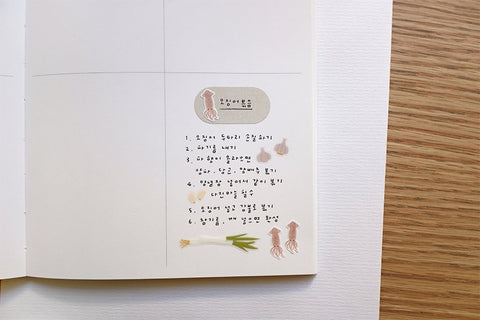 오징어볶음
1. 오징어 두마리 손질하기
2. 파기름 내기
3. 파향이 올라오면
양파, 당근, 양배추 볶기
4. 양념장 넣어서 같이 볶기
다진마늘 필수
5. 오징어 넣고 강불로 볶기
6. 참기름, 깨 넣으면 완성